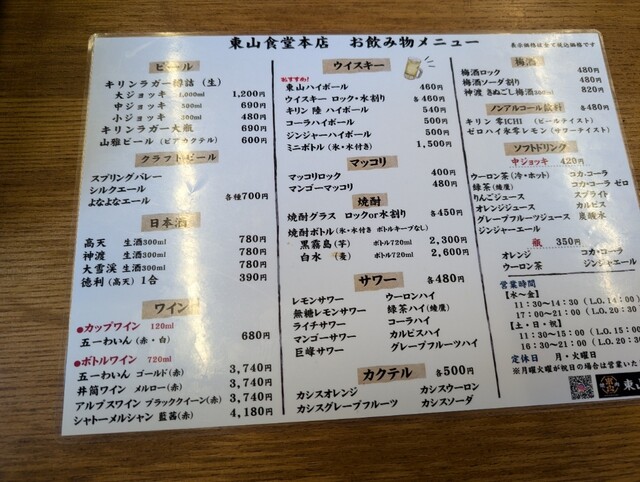 東山食堂本店 お飲み物メニュー
表示価格は全て税込価格です
ビール
キリンラガー樽詰(生)
大ジョッキ 1,000ml 1,200円
中ジョッキ 500ml 690円
小ジョッキ 300ml 480円
キリンラガー大瓶 690円
山雅ビール(ビアカクテル) 600円
クラフトビール
スプリングバレー
シルクエール
よなよなエール 各種700円
日本酒
高天 生酒300ml 780円
神渡 生酒300ml 780円
大雪渓 生酒300ml 780円
徳利(高天)1合 390円
ワイン
●カップワイン 120ml
五一わいん(赤・白) 680円
●ボトルワイン 720ml
五一わいん ゴールド(赤) 3,740円
井筒ワイン メルロー(赤) 3,740円
アルプスワイン ブラッククイーン(赤) 3,740円
シャトーメルシャン 藍茜(赤) 4,180円
ウイスキー
おすすめ!
東山ハイボール 460円
ウイスキー ロック・水割り 各460円
キリン 陸 ハイボール 540円
コーラハイボール 500円
ジンジャーハイボール 500円
ミニボトル(氷・水付き) 1,500円
マッコリ
マッコリロック 400円
マンゴーマッコリ 480円
焼酎
焼酎グラス ロックor水割り 各450円
焼酎ボトル(氷・水付き ボトルキープなし)
黒霧島(芋) ボトル720ml 2,300円
白水 (麦) ボトル720ml 2,600円
サワー 各480円
レモンサワー ウーロンハイ
無糖レモンサワー 緑茶ハイ(綾鷹)
ライチサワー コーラハイ
マンゴーサワー カルピスハイ
巨峰サワー グレープフルーツハイ
カクテル 各500円
カシスオレンジ カシスウーロン
カシスグレープフルーツ カシスソーダ
梅酒
梅酒ロック 480円
梅酒ソーダ割り 480円
神渡 きぬごし梅酒300ml 820円
ノンアルコール飲料 各480円
キリン 零ICHI (ビールテイスト)
ゼロハイ氷零レモン(サワーテイスト)
ソフトドリンク
中ジョッキ 420円
ウーロン茶(冷・ホット) コカ・コーラ
緑茶(綾鷹) コカ・コーラ ゼロ
りんごジュース スプライト
オレンジジュース カルピス
グレープフルーツジュース 炭酸水
ジンジャーエール
瓶 350円
オレンジ コカ・コーラ
ウーロン茶 ジンジャーエール
営業時間
【水~金】
11:30~14:30(L.O.14:00)
17:00~21:00(L.O.20
【土・日・祝】
11:30~15:00(L.O.
16:30~21:00(L.O.20
定休日 月・火曜日
※月曜火曜が祝日の場合は営業いた
東山